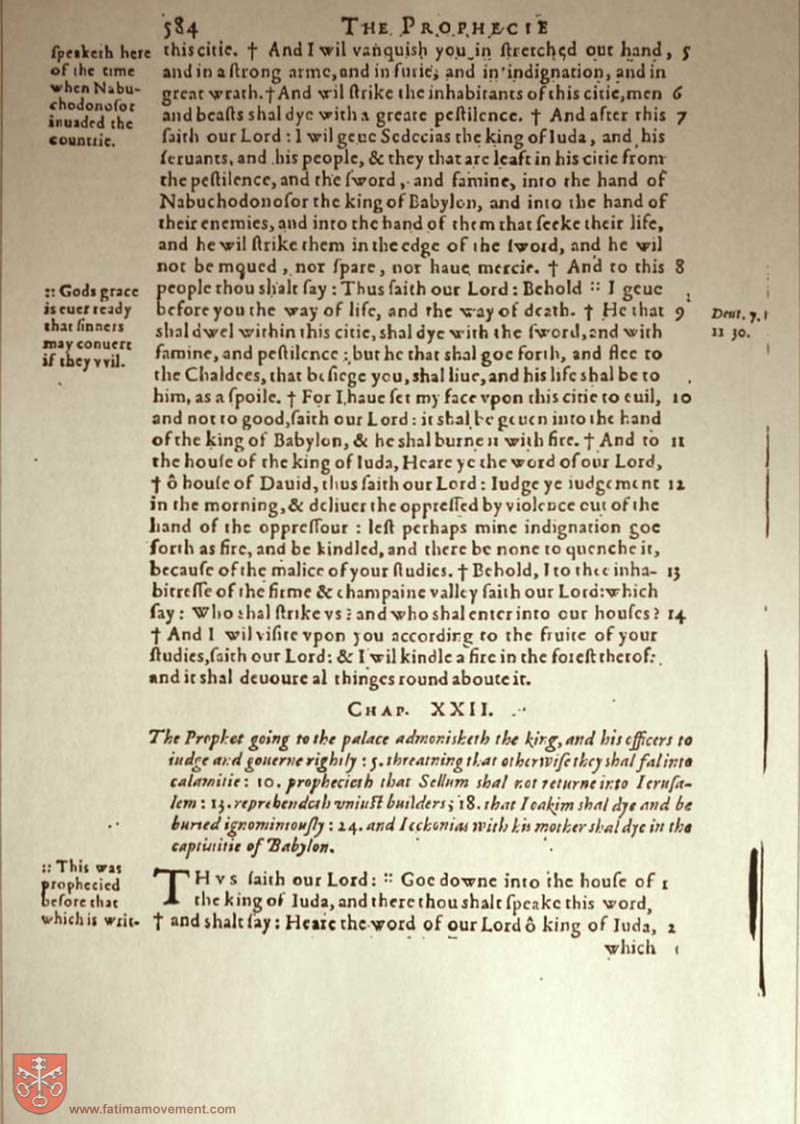 584 THE PROPHECIE
ſpeaketh here
of the time
when Nabu-
chodonoſor
inuaded the
countrie.
this citie. † And I wil vanquish you in ſtretched out hand, 5
and in a ſtrong arme, and in furie, and in indignation, and in
great wrath. † And wil ſtrike the inhabitants of this citie, men 6
and beaſts shal dye with a greate peſtilence. † And after this 7
ſaith our Lord: I wil geue Sedecias the king of Iuda, and his
ſeruants, and his people, & they that are leaft in his citie from
the peſtilence, and the ſword, and famine, into the hand of
Nabuchodonoſor the king of Babylon, and into the hand of
their enemies, and into the hand of them that ſeeke their life,
and he wil ſtrike them in the edge of the ſword, and he wil
not be moued, nor ſpare, nor haue mercie. † And to this 8
people thou shalt ſay: Thus ſaith our Lord: Behold :: I geue
before you the way of life, and the way of death. † He that 9
shal dwel within this citie, shal dye with the ſword, and with
famine, and peſtilence: but he that shal goe forth, and flee to
the Chaldees, that beſiege you, shal liue, and his life shal be to
him, as a ſpoile. † For I haue ſet my face vpon this citie to euil, 10
and not to good, ſaith our Lord: it shal be geuen into the hand
of the king of Babylon, & he shal burne it with fire. † And to 11
the houſe of the king of Iuda, Heare ye the word of our Lord,
† ô houſe of Dauid, thus ſaith our Lord: Iudge ye iudgement 12
in the morning, & deliuer the oppreſſed by violence out of the
hand of the oppreſſour: leſt perhaps mine indignation goe
forth as fire, and be kindled, and there be none to quenche it,
becauſe of the malice of your ſtudies. † Behold, I to thee inha- 13
bitreſſe of the firme & champaine valley ſaith our Lord: which
ſay: Who shal ſtrike vs? and who shal enter into our houſes? 14
† And I wil viſite vpon you according to the fruite of your
ſtudies, ſaith our Lord: & I wil kindle a fire in the foreſt therof:
and it shal deuoure al thinges round aboute it.
:: Gods grace
is euer ready
that ſinners
may conuert
if they vvil.
Deut. 7. 1
11 30.
CHAP. XXII.
The Prophet going to the palace admonisheth the king, and his officers to
iudge and gouerne rightly: 5. threatning that otherwiſe they shal fal into
calamitie: 10. prophecieth that Sellum shal not returne into Ieruſa-
lem: 13. reprehendeth vniuſt builders; 18. that Ioakim shal dye and be
buried ignominiouſly: 24. and Iechonias with his mother shal dye in the
captiuitie of Babylon.
:: This was
prophecied
before that
which is writ-
THVS ſaith our Lord: :: Goe downe into the houſe of 1
the king of Iuda, and there thou shalt ſpeake this word,
† and shalt ſay: Heare the word of our Lord ô king of Iuda, 2
which
www.fatimamovement.com